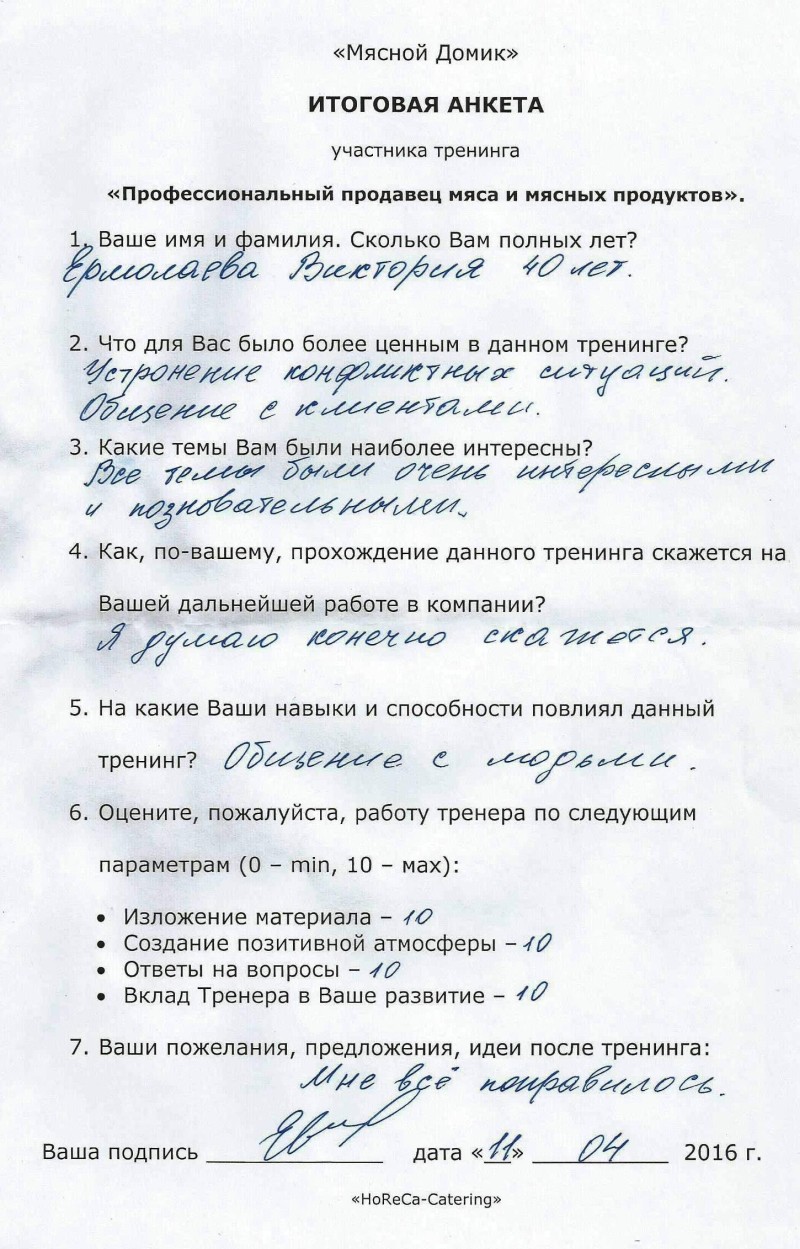 «Мясной Домик»
ИТОГОВАЯ АНКЕТА
участника тренинга
«Профессиональный продавец мяса и мясных продуктов».
1. Ваше имя и фамилия. Сколько Вам полных лет?
Ермолаева Виктория 40 лет.
2. Что для Вас было более ценным в данном тренинге?
Устронение конфликтных ситуаций.
Общение с клиентами.
3. Какие темы Вам были наиболее интересны?
Все темы были очень интересными
и позновательными.
4. Как, по-вашему, прохождение данного тренинга скажется на
Вашей дальнейшей работе в компании?
Я думаю конечно скажется.
5. На какие Ваши навыки и способности повлиял данный
тренинг? Общение с людьми.
6. Оцените, пожалуйста, работу тренера по следующим
параметрам (0 – min, 10 – мах):
• Изложение материала – 10
• Создание позитивной атмосферы – 10
• Ответы на вопросы – 10
• Вклад Тренера в Ваше развитие – 10
7. Ваши пожелания, предложения, идеи после тренинга:
Мне всё понравилось.
Ваша подпись дата «11» 04 2016 г.
«HoReCa-Catering»